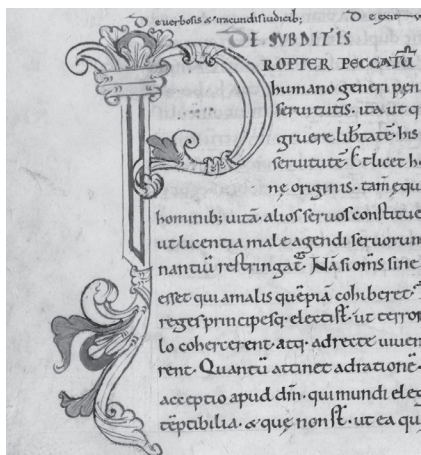 De verbosis & iracundis iudicib;
DE SUBDITIS
PROPTER PECCATŪ
humano generi pęn
seruitutis. ita ut q
gruere libtatē his
seruitutē. Et licet h
nę originis. tam̄ equ
hominib; uitā. alios seruos constitue
ut licentia male agendi seruorum
nantiū restringat. Nā si om̄s sine
esset qui a malis quēpiā cohiberet.
reges principesq; electi st̄. ut terror
lo cohercerent. atq; ad recte uiuen
rent. Quantū attinet ad rationē.
acceptio apud dm̄. qui mundi elec
tēptibilia. & quę non st̄. ut ea qu